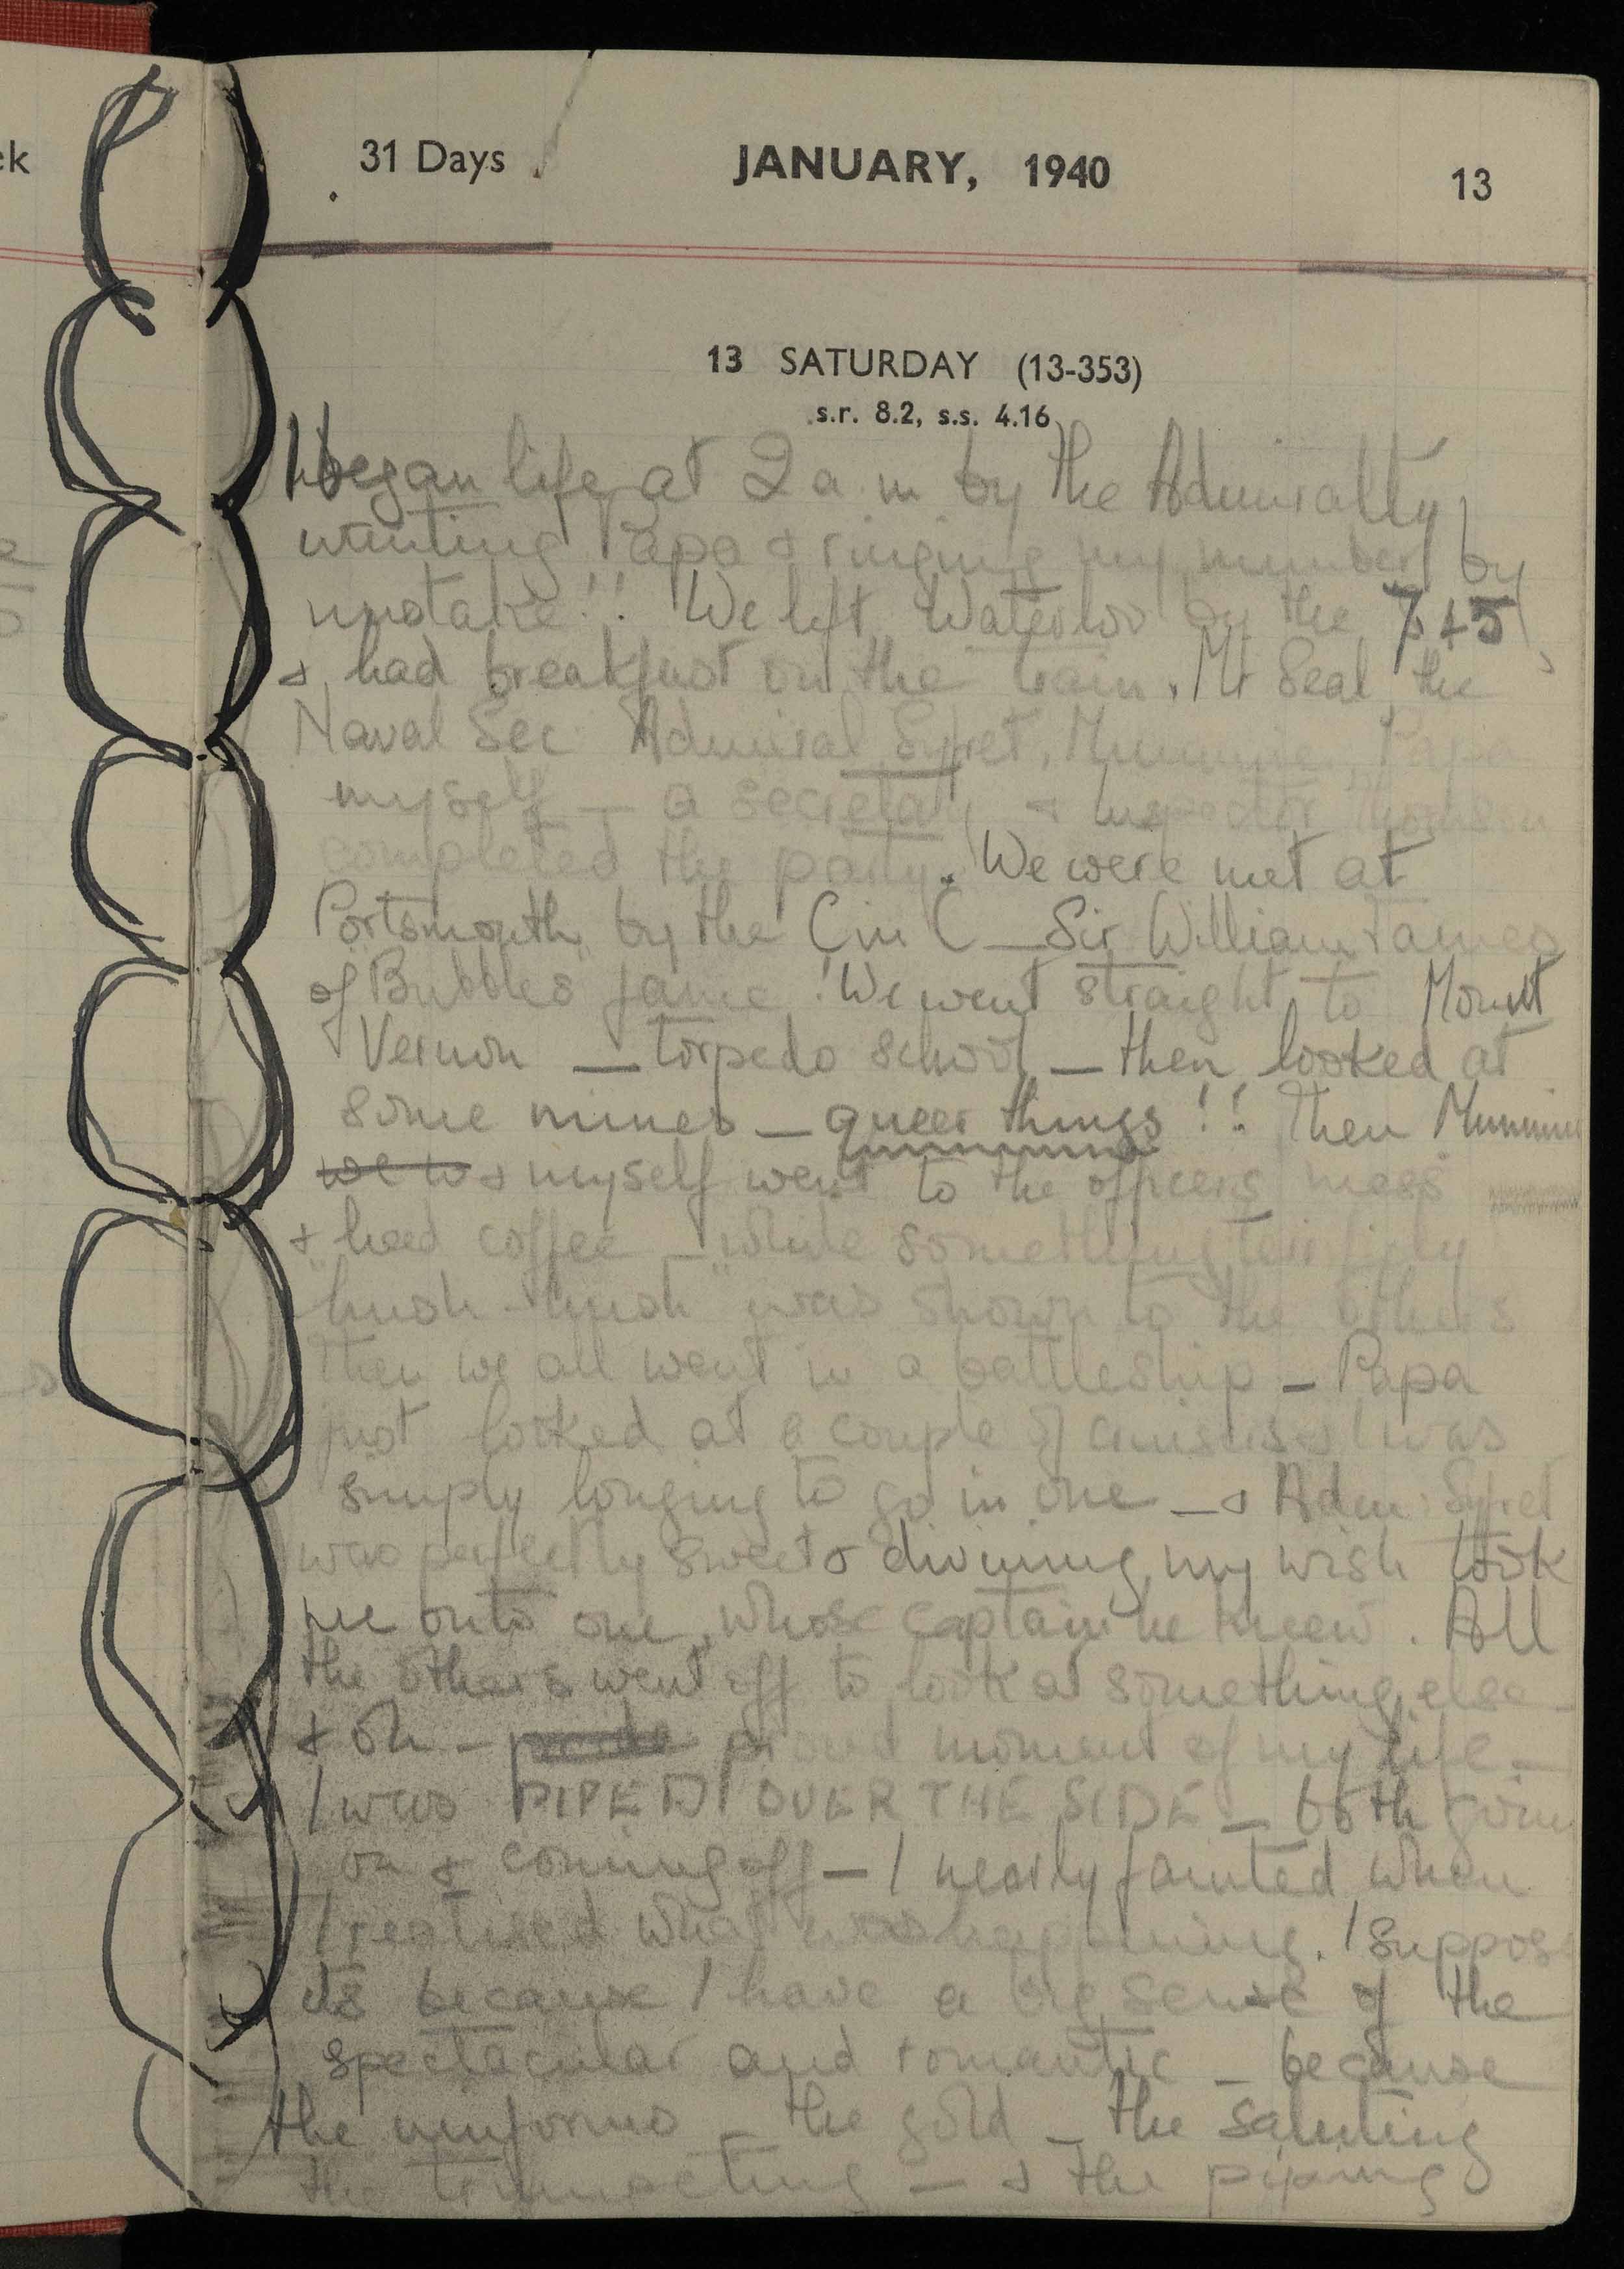 ek
31 Days JANUARY, 1940 13
13 SATURDAY (13-353)
s.r. 8.2, s.s. 4.16
I began life at 2 a.m by the Admiralty
wanting Papa & ringing my number by
mistake!! We left Waterloo by the 7 45
& had breakfast on the train. Mr Seal, the
Naval Sec Admiral Syfret, Mummie, Papa
myself — a secretary & Inspector Thomson
completed the party. We were met at
Portsmouth by the C in C — Sir William James
of "Bubbles" fame! We went straight to Mount
Vernon — torpedo school — then looked at
some mines — queer things!! Then Mummie
we to & myself went to the officers mess
& had coffee — while something terrifigly
"hush-hush" was shown to the others
Then we all went in a battleship — Papa
just looked at a couple of cruisers & I was
simply longing to go in one — & Adm: Syfret
was perfectly sweet & divining my wish took
me onto one, whose captain he knew. All
the others went off to look at something else —
& oh — proud moment of my life —
I was PIPED OVER THE SIDE — both going
on & coming off — I nearly fainted when
I realised what was happening. I suppose
its because I have a big sense of the
spectacular and romantic — because
the uniforms — the gold — the saluting
the — & the piping